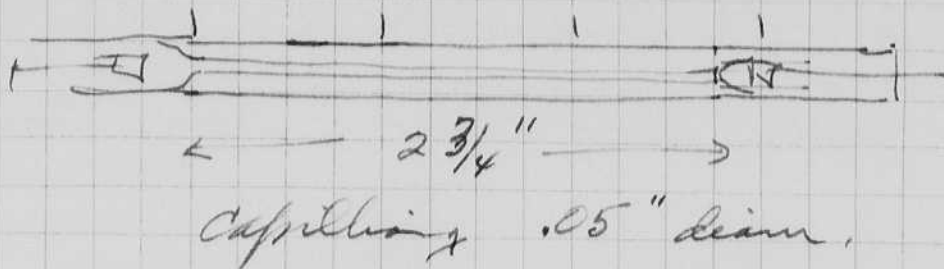 2 3/4"
Capillary .05" diam.